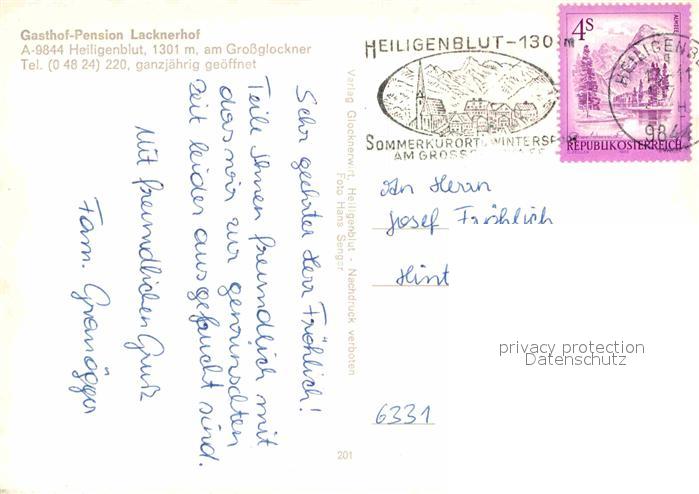 Gasthof-Pension Lacknerhof
A-9844 Heiligenblut, 1301 m, am Großglockner
Tel. (0 48 24) 220, ganzjährig geöffnet
Sehr geehrter Herr Fröhlich!
Teile Ihnen freundlich mit
das wir zur gewünschten
Zeit leider ausgebucht sind.
Mit freundlichen Gruß
Fam. Granögger
Verlag Glocknerwirt, Heiligenblut - Nachdruck verboten
Foto Hans Senger
201
HEILIGENBLUT-130 m
SOMMERKURORT u. WINTERSP
AM GROSSG
4S
ALMSEE
REPUBLIK ÖSTERREICH
HEILIGENB
9844
An Herrn
Josef Fröhlich
Hint
6331
privacy protection
Datenschutz